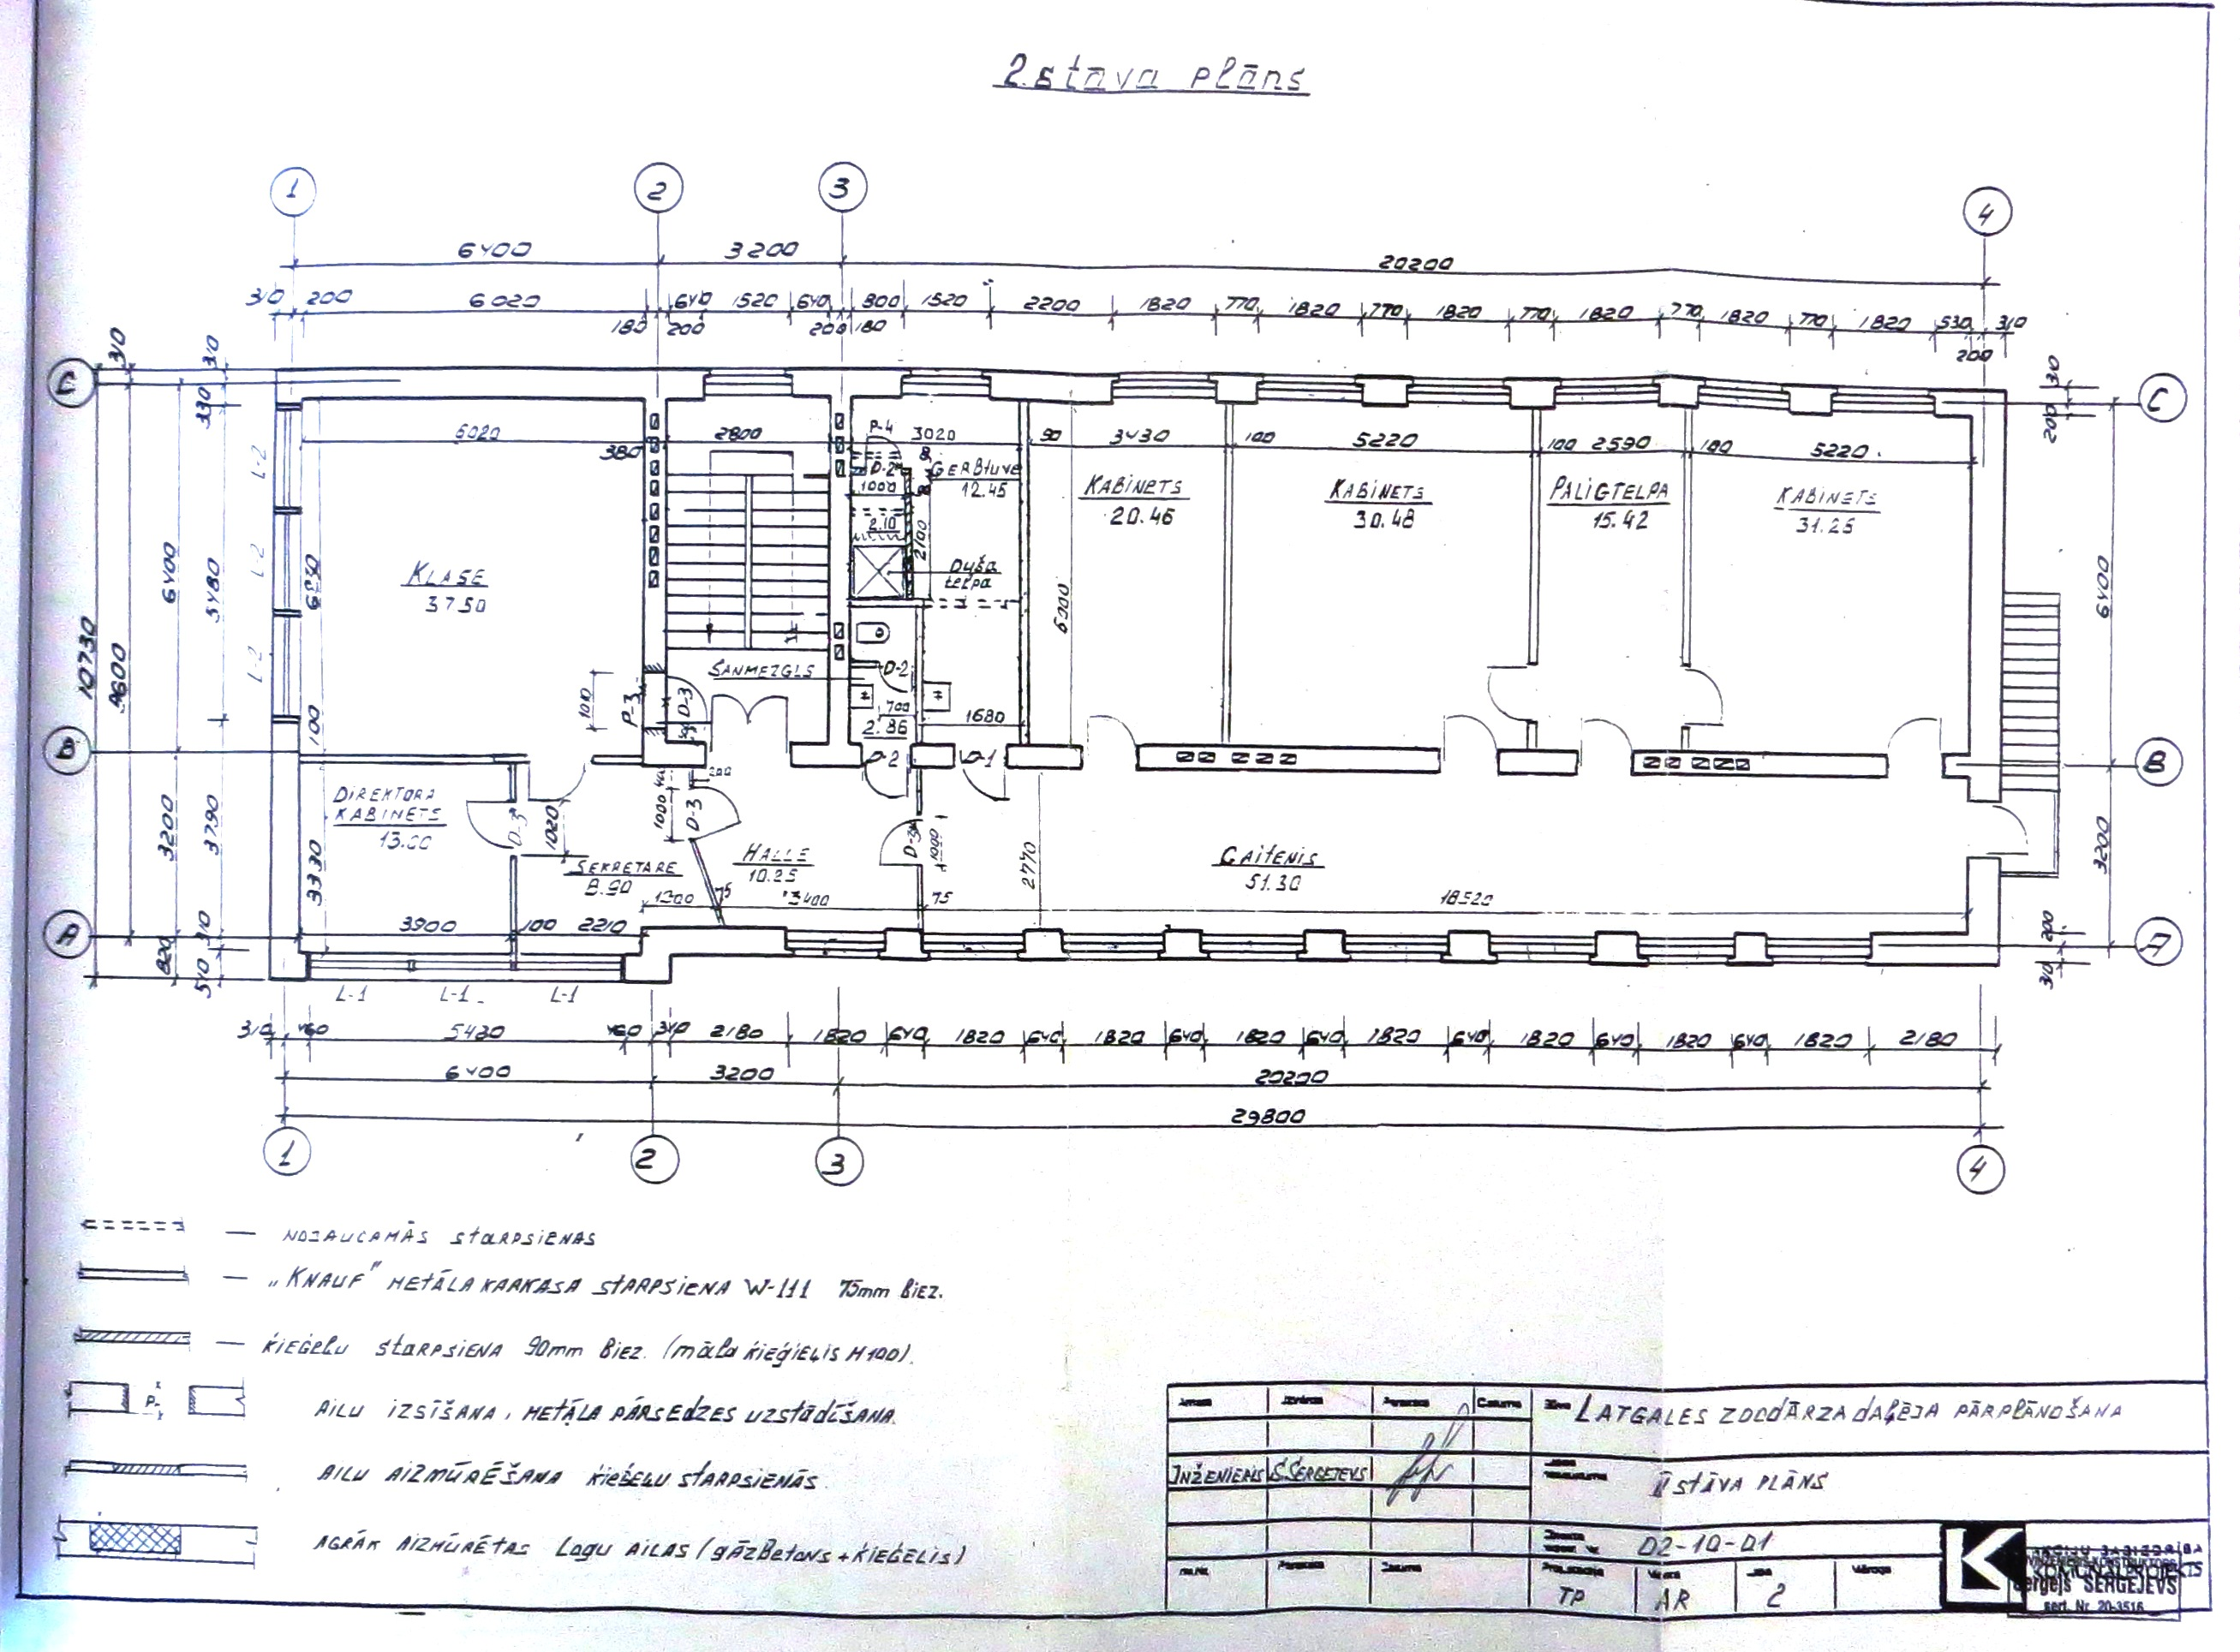 2. stāva plāns
1 2 3 4
6400 3200 20200
310 200 6020 640 1520 640 800 1520 2200 1820 770 1820 770 1820 770 1820 770 1820 770 1820 530 310
180 200 200 180 200
C C
310 310 330
310 200
6020 380 2800 3020 90 3430 100 5220 100 2590 100 5220
P-4
D-2
1000
ĢĒRBTUVE
12.45
2.10
2100
DUŠA
telpa
KABINETS
20.46
KABINETS
30.48
PALIGTELPA
15.42
KABINETS
31.25
KLASE
37.50
L-2
L-2
L-2
6400 5480 6000 6400
10730 9600
SANMEZGLS
D-2
1010 P-3 D-3
100
700 1680
2.86
B B
D-2 D-1
200
DIREKTORA
KABINETS
13.00
D-3
1020
1000 D-3
SEKRETARE
8.90
HALLE
10.25
D-3 1000
2770
GAITENIS
51.30
3200 3790 3330 3200
1300 75 3400 75 18520
3900 100 2210
A A
820 310 510
200 310
L-1 L-1 L-1
310 460 5480 460 310 2180 1820 640 1820 640 1820 640 1820 640 1820 640 1820 640 1820 640 1820 2180
6400 3200 20200
29800
1 2 3 4
— NOJAUCAMĀS STARPSIENAS
— „KNAUF" METĀLA KARKASA STARPSIENA W-111 75mm BIEZ.
— ĶIEĢEĻU STARPSIENA 90mm BIEZ. (māla ķieģielis M100).
P-
AILU IZSĪŠANA, METĀLA PĀRSEDZES UZSTĀDĪŠANA.
AILU AIZMŪRĒŠANA ĶIEĢEĻU STARPSIENĀS.
AGRĀK AIZMŪRĒTAS LOGU AILAS (gāzBetons + ĶIEĢELIS)
LATGALES ZOODĀRZA DAĻĒJA PĀRPLĀNOŠANA
INŽENIERIS S.SERGEJEVS
II STĀVA PLĀNS
02-10-01
TP AR 2
K
KOMUNALPROJEKTS
Sergejs SERGEJEVS
sert. Nr. 20-3516